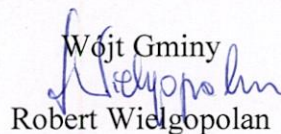 Wójt Gminy
Wielgopolan
Robert Wielgopolan